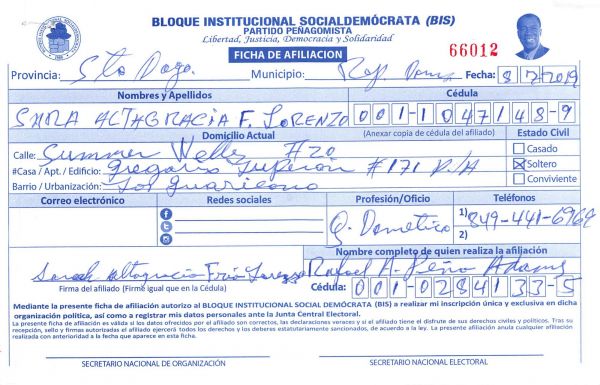 BLOQUE INSTITUCIONAL SOCIALDEMÓCRATA (BIS)
PARTIDO PEÑAGOMISTA
Libertad, Justicia, Democracia y Solidaridad
FICHA DE AFILIACION
66012
Provincia: Sto Dgo. Municipio: Rep. Dom. Fecha: 8/2/2019
Nombres y Apellidos Cédula
SARA ALTAGRACIA F. LORENZO 001-1047148-9
Domicilio Actual (Anexar copia de cédula del afiliado) Estado Civil
Calle: Summer Welles #20 Casado
#Casa / Apt. / Edificio: Gregorio #171 P/A Soltero
Barrio / Urbanización: Los Guaricano Conviviente
Correo electrónico Redes sociales Profesión/Oficio Teléfonos
Q. Domestico 1) 849-441-6967
2)
Nombre completo de quien realiza la afiliación
Sarah Altagracia Frias Lorenzo Rafael A. Peña Adames
Firma del afiliado (Firme igual que en la Cédula) Cédula: 001-0284133-5
Mediante la presente ficha de afiliación autorizo al BLOQUE INSTITUCIONAL SOCIAL DEMÓCRATA (BIS) a realizar mi inscripción única y exclusiva en dicha
organización política, así como a registrar mis datos personales ante la Junta Central Electoral.
La presente ficha de afiliación es válida si los datos ofrecidos por el afiliado son correctos, las declaraciones veraces y si el afiliado tiene el disfrute de sus derechos civiles y políticos. Tras su
recepción, sello y firmas autorizadas el afiliado ejercerá todos los derechos y los deberes estatutariamente sancionados, de acuerdo a la ley. La presente afiliación anula cualquier afiliación
realizada con anterioridad a la fecha que aparece en esta ficha.
SECRETARIO NACIONAL DE ORGANIZACIÓN SECRETARIO NACIONAL ELECTORAL